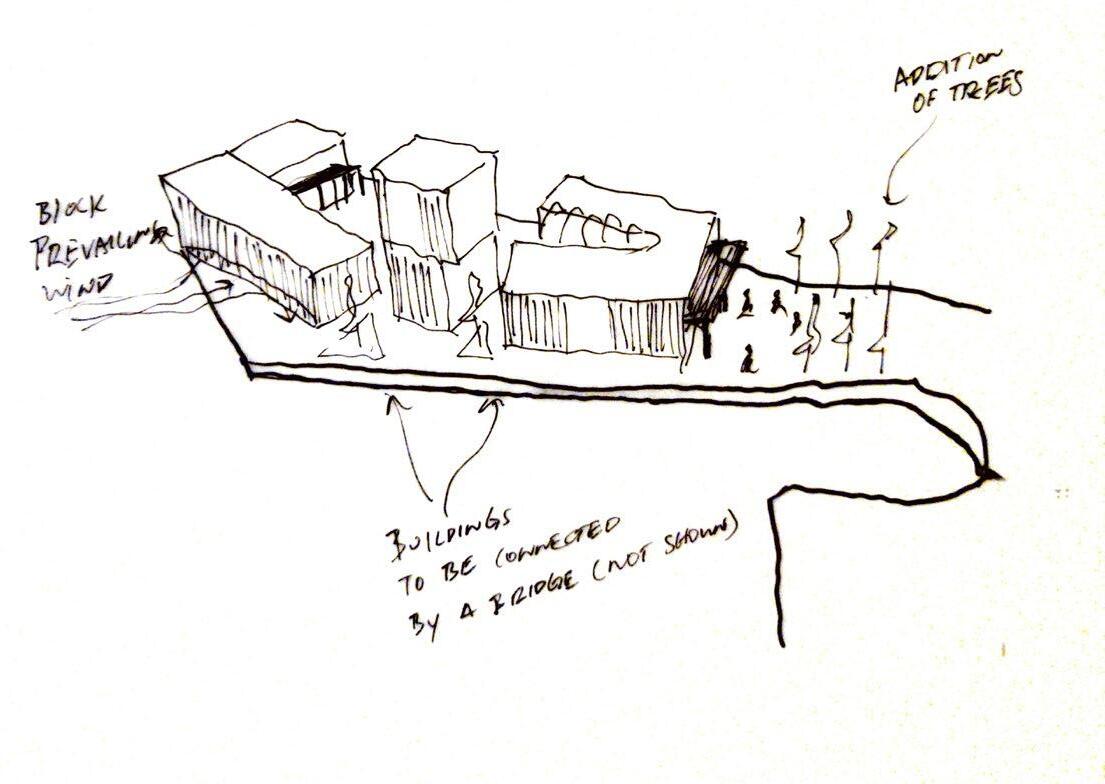 ADDITION
OF TREES
BLOCK
PREVAILING
WIND
BUILDINGS
TO BE CONNECTED
BY A BRIDGE (NOT SHOWN)